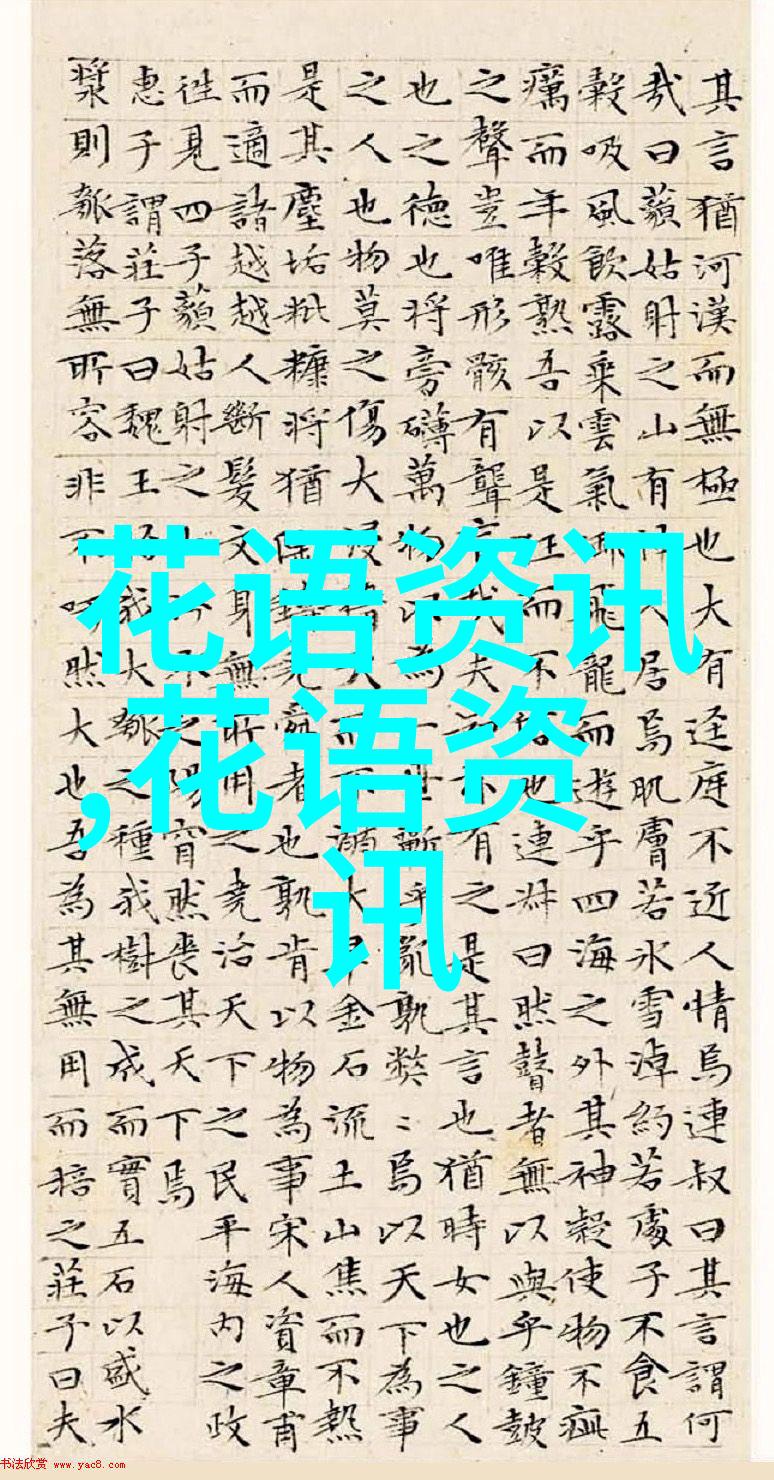 花语资讯
,花语资
讯
其言猶河漢而無極也大有逕庭不近人情焉連叔曰其言謂何
哉曰藐姑射之山有人居焉肌膚若冰雪淖約若處子不食五
穀吸風飲露乘雲氣飛龍而遊乎四海之外其神凝使物不疵
癘而年穀熟吾以是狂而不也連叔曰然瞽者無以與乎鐘鼓
之聲豈唯形骸有聾哉夫有之是其言也猶時女也之人
也之德也將旁礴萬物以為一世蘄乎亂孰弊〻焉以天下為事
之人也物莫之傷大而不溺大旱金石流土山焦而不熱
是其塵垢粃糠將猶堯舜者也孰肯以物為事宋人資章甫
而適諸越越人斷髮文身無所用之堯治天下之民平海內之政
往見四子藐姑射之之陽窅然喪其天下焉
惠子謂莊子曰魏王我大瓠之種我樹之成而實五石以盛水
漿則瓠落無所容非不呺然大也吾為其無用而掊之莊子曰夫
书法欣赏 www.yac8.com